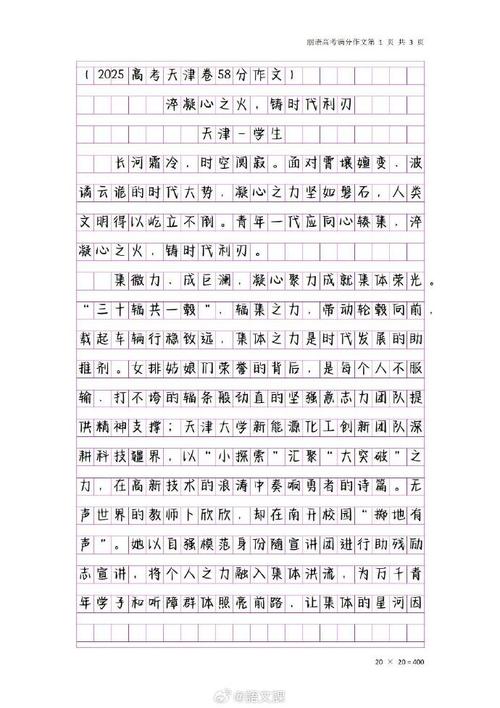 丽语高考满分作文第 1 页 共 3 页
（2025高考天津卷58分作文）
淬凝心之火，铸时代利刃
天津一学生
长河霜冷，时空阒寂。面对霄壤嬗变，波
谲云诡的时代大势，凝心之力坚如磐石，人类
文明得以屹立不倒。青年一代应同心辏集，淬
凝心之火，铸时代利刃。
集微力，成巨澜，凝心聚力成就集体荣光。
“三十辐共一毂”，辐集之力，带动轮毂向前，
载起车辆行稳致远，集体之力是时代发展的助
推剂。女排姑娘们荣誉的背后，是每个人不服
输，打不垮的辐条般劲直的坚强意志力团队提
供精神支撑；天津大学新能源化工创新团队深
耕科技疆界，以“小探索”汇聚“大突破”之
力，在高新技术的浪涛中奏响勇者的诗篇。无
声世界的教师卜欣欣，却在南开校园“掷地有
声”。她以自强模范身份随宣讲团进行助残励
志宣讲，将个人之力融入集体洪流，为万千青
年学子和听障群体照亮前路，让集体的星河因
20 × 20 = 400
@语文课